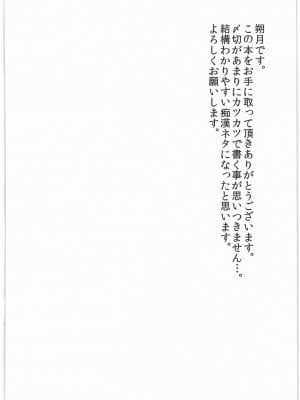 朔月です。
この本をお手に取って頂きありがとうございます。
〆切があまりにカツカツで書く事が思いつきません…。
結構わかりやすい痴漢ネタになったと思います。
よろしくお願いします。